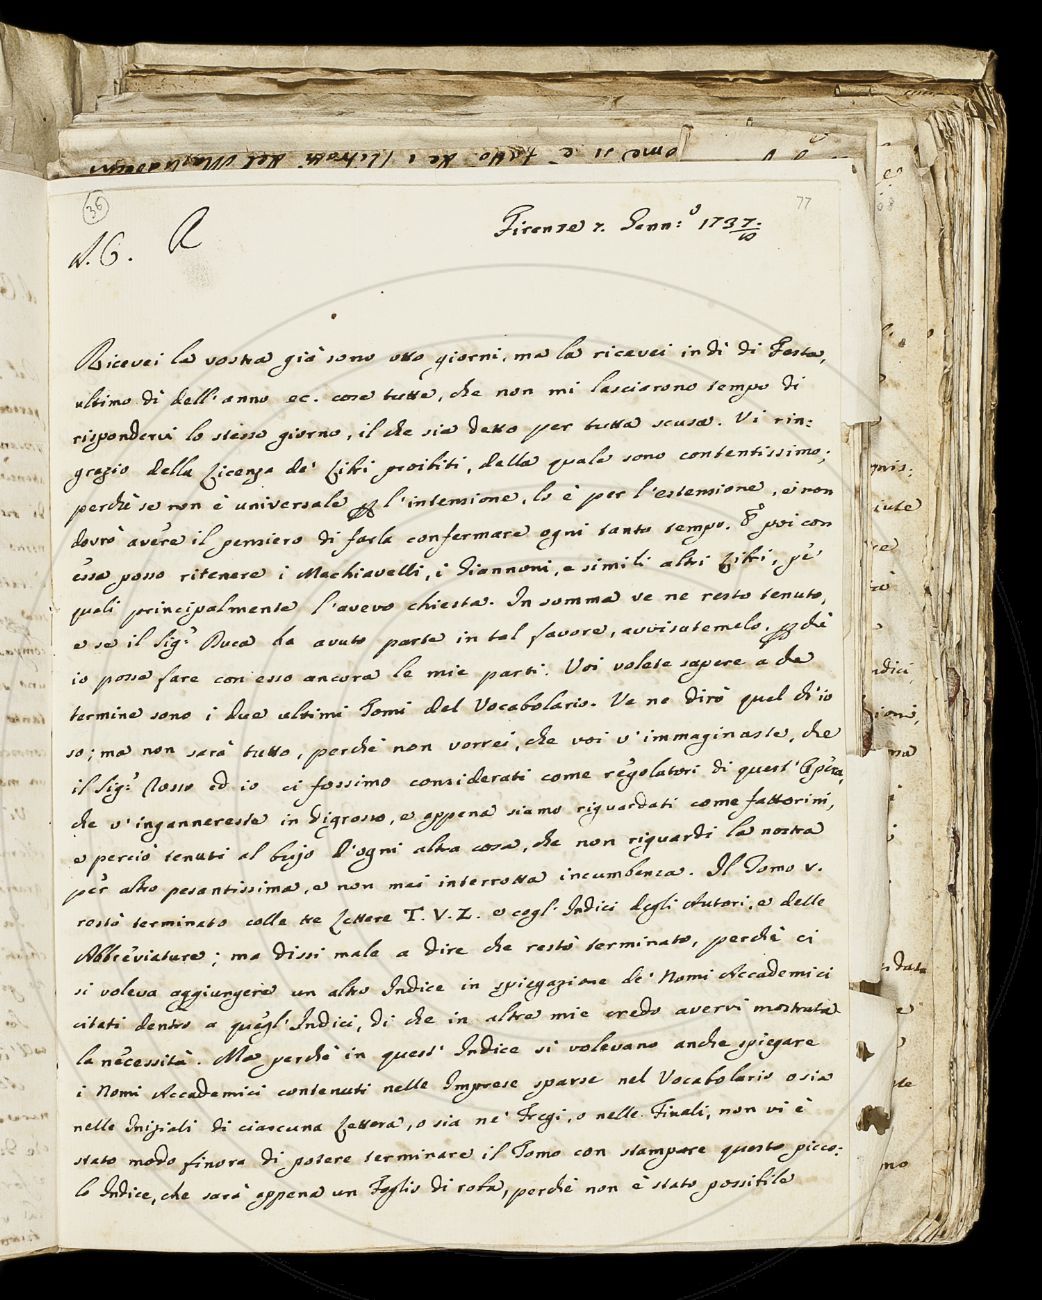 36
77
A. C. R
Firenze 7. Genn:º 1737/8
Ricevei la vostra già sono otto giorni, ma la ricevei in dì di Festa,
ultimo dì dell'anno ec. cose tutte, che non mi lasciarono tempo di
rispondervi lo stesso giorno, il che sia detto per tutta scusa. Vi rin=
grazio della Licenza de' Libri proibiti, della quale sono contentissimo;
perchè se non è universale l'intensione, lo è per l'estensione, e non
dovrò avere il pensiero di farla confermare ogni tanto tempo. E poi con
essa posso ritenere i Machiavelli, i Giannoni, e simili altri Libri, pe'
quali principalmente l'avevo chiesta. In somma ve ne resto tenuto,
e se il Sig.r Buca ha avuto parte in tal favore, avvisatemelo, chè
io possa fare con esso ancora le mie parti. Voi volete sapere a che
termine sono i due ultimi Tomi del Vocabolario. Ve ne dirò quel ch'io
so; ma non sarà tutto, perchè non vorrei, che voi v'immaginaste, che
il Sig.r Rosso ed io ci fossimo considerati come regolatori di quest'Opera,
che v'ingannereste in digrosso, e appena siamo riguardati come fattorini,
e perciò tenuti al bujo d'ogni altra cosa, che non riguardi la nostra
per altro pesantissima, e non mai interrotta incumbenza. Il Tomo V.
restò terminato colle tre Lettere T. V. Z. e cogl'Indici degli Autori, e delle
Abbreviature; ma dissi male a dire che restò terminato, perchè ci
si voleva aggiungere un altro Indice in spiegazione de' Nomi Accademici
citati dentro a quegl'Indici, di che in altre mie credo avervi mostrata
la necessità. Ma perchè in quest'Indice si volevano anche spiegare
i Nomi Accademici contenuti nelle Imprese sparse nel Vocabolario o sia
nelle Iniziali di ciascuna Lettera, o sia ne' Fregi, o nelle Finali, non vi è
stato modo finora di potere terminare il Tomo con stampare questo picco=
lo Indice, che sarà appena un Foglio di roba, perchè non è stato possibile